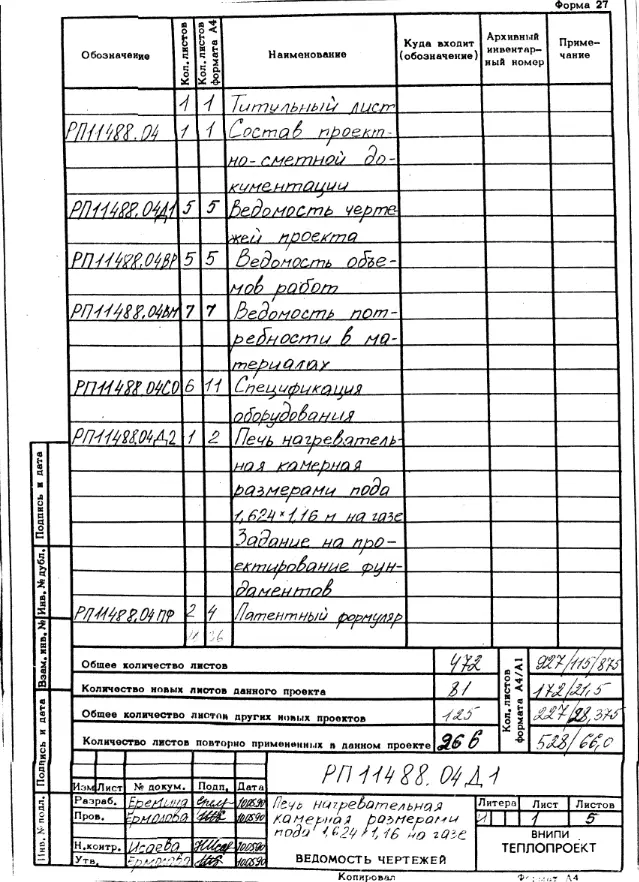 Форма 27
Обозначение Кол. листов Кол. листов формата А4 Наименование Куда входит (обозначение) Архивный инвентарный номер Примечание
1 1 Титульный лист
РП11488.04 1 1 Состав проект-
но-сметной до-
кументации
РП11488.04Д1 5 5 Ведомость черте
жей проекта
РП11488.04ВР 5 5 Ведомость объе-
мов работ
РП11488.04ВМ 7 7 Ведомость пот-
ребности в ма-
териалах
РП11488.04СО 6 11 Спецификация
оборудования
РП11488.04Д2 1 2 Печь нагреватель-
ная камерная
размерами пода
1,624×1,16 м на газе
Задание на про-
ектирование фун-
даментов
РП11488.04ПФ 2 4 Патентный формуляр
36
Общее количество листов 472
Количество новых листов данного проекта 81
Общее количество листов других новых проектов 125
Количество листов повторно примененных в данном проекте 266
Кол. листов формата А4/А1
927/115,875
172/21,5
227/28,375
528/66,0
Подпись и дата
Инв. № дубл.
Взам. инв. №
Подпись и дата
Инв. № подл.
РП11488.04Д1
Изм Лист № докум. Подп. Дата
Разраб. Еремина 10.05.90
Пров. Ермолова 10.05.90
Н.контр. Исаева 10.05.90
Утв. Ермолова 10.05.90
Печь нагревательная
камерная размерами
пода 1,624×1,16 на газе
ВЕДОМОСТЬ ЧЕРТЕЖЕЙ
Литера Лист Листов
И 1 5
ВНИПИ
ТЕПЛОПРОЕКТ
Копировал Формат А4